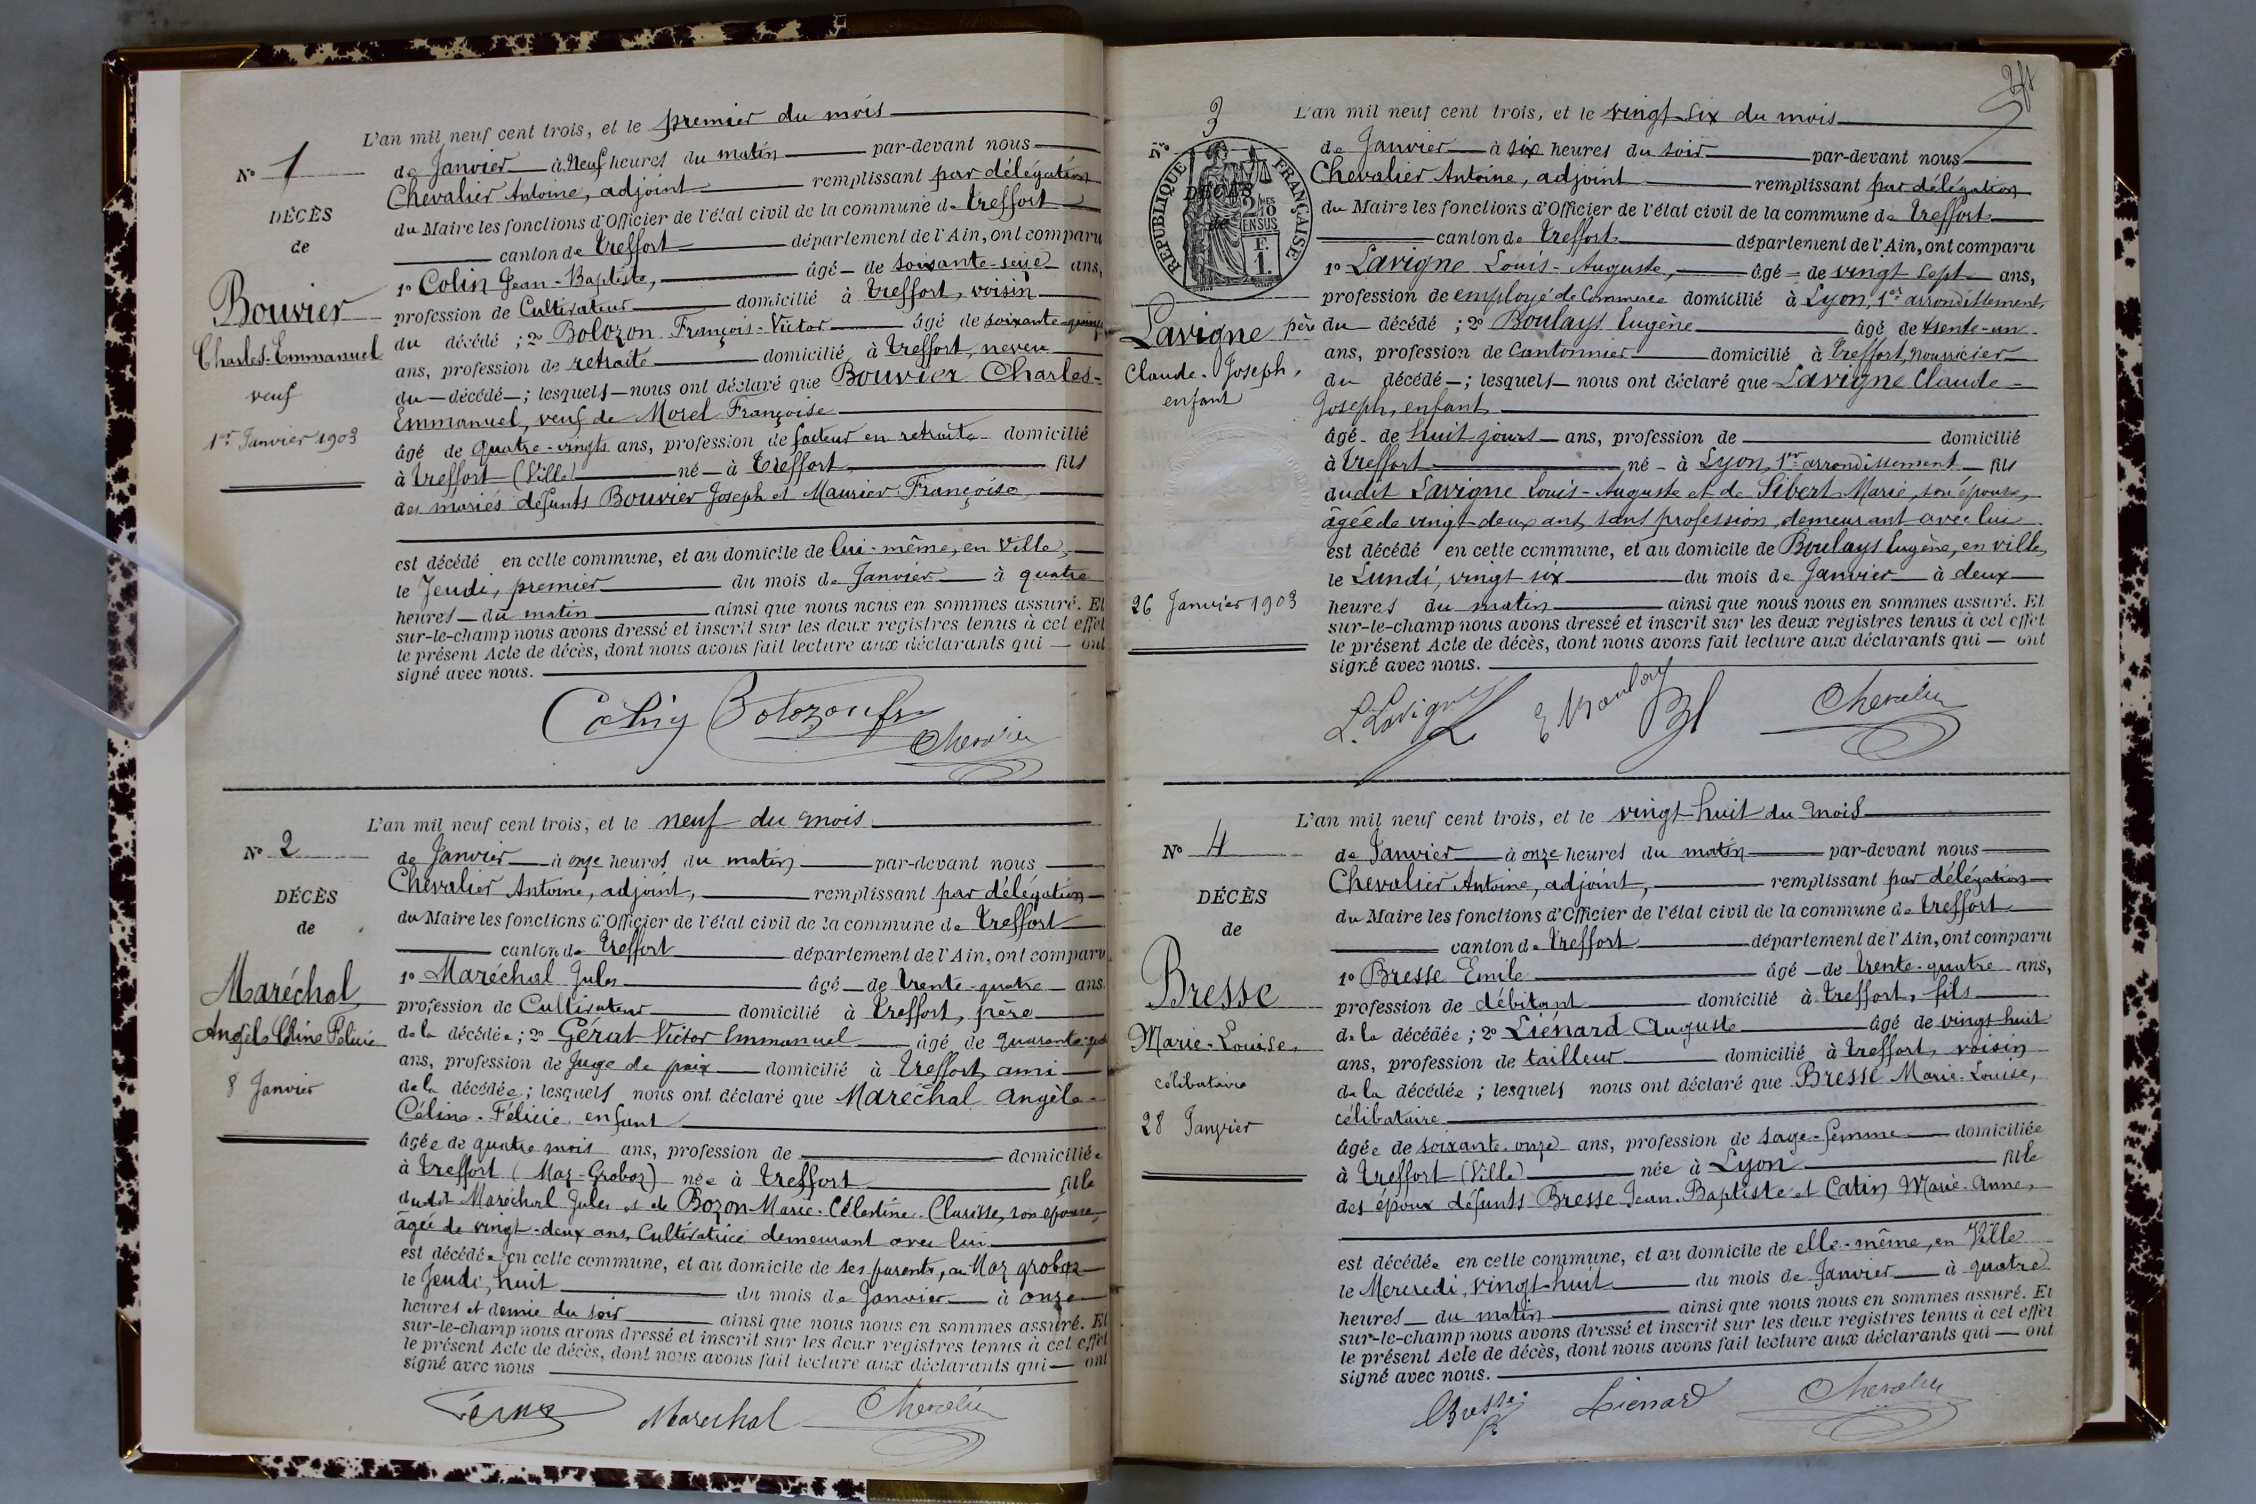 L'an mil neuf cent trois, et le premier du mois
N° 1
de Janvier à Neuf heures du matin par-devant nous
Chevalier Antoine, adjoint remplissant par délégation
DÉCÈS
du Maire les fonctions d'Officier de l'état civil de la commune de Treffort
de
canton de Treffort département de l'Ain, ont comparu
1° Colin Jean-Baptiste, âgé de soixante-seize ans,
Bouvier
profession de Cultivateur domicilié à Treffort, voisin
du décédé ; 2° Bolozon François-Victor âgé de soixante-quinze
Charles-Emmanuel
ans, profession de retraité domicilié à Treffort, neveu
veuf
du décédé ; lesquels nous ont déclaré que Bouvier Charles-
Emmanuel, veuf de Morel Françoise
1er Janvier 1903
âgé de Quatre-vingts ans, profession de facteur en retraite domicilié
à Treffort (Ville) né à Treffort fils
des mariés défunts Bouvier Joseph et Maurier Françoise
est décédé en cette commune, et au domicile de lui-même, en Ville,
le Jeudi, premier du mois de Janvier à quatre
heures du matin ainsi que nous nous en sommes assuré. Et
sur-le-champ nous avons dressé et inscrit sur les deux registres tenus à cet effet
le présent Acte de décès, dont nous avons fait lecture aux déclarants qui ont
signé avec nous.
Colin Bolozon Chevalier
L'an mil neuf cent trois, et le neuf du mois
N° 2
de Janvier à onze heures du matin par-devant nous
Chevalier Antoine, adjoint, remplissant par délégation
DÉCÈS
du Maire les fonctions d'Officier de l'état civil de la commune de Treffort
de
canton de Treffort département de l'Ain, ont comparu
1° Maréchal Jules âgé de trente-quatre ans
Maréchal
profession de Cultivateur domicilié à Treffort, père
Angèle Céline Félicie
de la décédée ; 2° Gérat Victor Emmanuel âgé de quarante
ans, profession de Juge de paix domicilié à Treffort, ami
8 Janvier
de la décédée ; lesquels nous ont déclaré que Maréchal Angèle-
Céline-Félicie, enfant
âgée de quatre mois ans, profession de domiciliée
à Treffort (Maz-Groboz) née à Treffort fille
dudit Maréchal Jules et de Bozon Marie-Célestine-Clarisse, son épouse,
âgée de vingt-deux ans, Cultivatrice demeurant avec lui
est décédée en cette commune, et au domicile de ses parents, au Maz groboz
le Jeudi, huit du mois de Janvier à onze
heures et demie du soir ainsi que nous nous en sommes assuré. Et
sur-le-champ nous avons dressé et inscrit sur les deux registres tenus à cet effet
le présent Acte de décès, dont nous avons fait lecture aux déclarants qui ont
signé avec nous
Marechal Chevalier
L'an mil neuf cent trois, et le vingt-six du mois
N° 3
de Janvier à six heures du soir par-devant nous
Chevalier Antoine, adjoint remplissant par délégation
RÉPUBLIQUE FRANÇAISE
DÉCÈS
2/10 EN SUS
de
F. 1.
du Maire les fonctions d'Officier de l'état civil de la commune de Treffort
canton de Treffort département de l'Ain, ont comparu
1° Lavigne Louis-Auguste, âgé de vingt sept ans,
profession de employé de Commerce domicilié à Lyon, 1er arrondissement,
Lavigne
père du décédé ; 2° Boulays Eugène âgé de trente-un
ans, profession de Cantonnier domicilié à Treffort, nourricier
Claude-Joseph,
du décédé ; lesquels nous ont déclaré que Lavigne Claude-
enfant
Joseph, enfant
âgé de huit jours ans, profession de domicilié
à Treffort né à Lyon, 1er arrondissement fils
dudit Lavigne Louis-Auguste et de Sibert Marie, son épouse,
âgée de vingt-deux ans, sans profession, demeurant avec lui
est décédé en cette commune, et au domicile de Boulays Eugène, en ville,
le Lundi, vingt six du mois de Janvier à deux
26 Janvier 1903
heures du matin ainsi que nous nous en sommes assuré. Et
sur-le-champ nous avons dressé et inscrit sur les deux registres tenus à cet effet
le présent Acte de décès, dont nous avons fait lecture aux déclarants qui ont
signé avec nous.
L. Lavigne E Boulay Chevalier
L'an mil neuf cent trois, et le vingt-huit du mois
N° 4
de Janvier à onze heures du matin par-devant nous
Chevalier Antoine, adjoint, remplissant par délégation
DÉCÈS
du Maire les fonctions d'Officier de l'état civil de la commune de Treffort
de
canton de Treffort département de l'Ain, ont comparu
1° Bresse Emile âgé de trente-quatre ans,
Bresse
profession de débitant domicilié à Treffort, fils
Marie-Louise,
de la décédée ; 2° Liénard Auguste âgé de vingt-huit
ans, profession de tailleur domicilié à Treffort, voisin
célibataire
de la décédée ; lesquels nous ont déclaré que Bresse Marie-Louise,
28 Janvier
célibataire
âgée de soixante-onze ans, profession de sage-femme domiciliée
à Treffort (Ville) née à Lyon fille
des époux défunts Bresse Jean-Baptiste et Catin Marie-Anne,
est décédée en cette commune, et au domicile de elle-même, en Ville
le Mercredi, vingt-huit du mois de Janvier à quatre
heures du matin ainsi que nous nous en sommes assuré. Et
sur-le-champ nous avons dressé et inscrit sur les deux registres tenus à cet effet
le présent Acte de décès, dont nous avons fait lecture aux déclarants qui ont
signé avec nous.
Bresse Lienard Chevalier